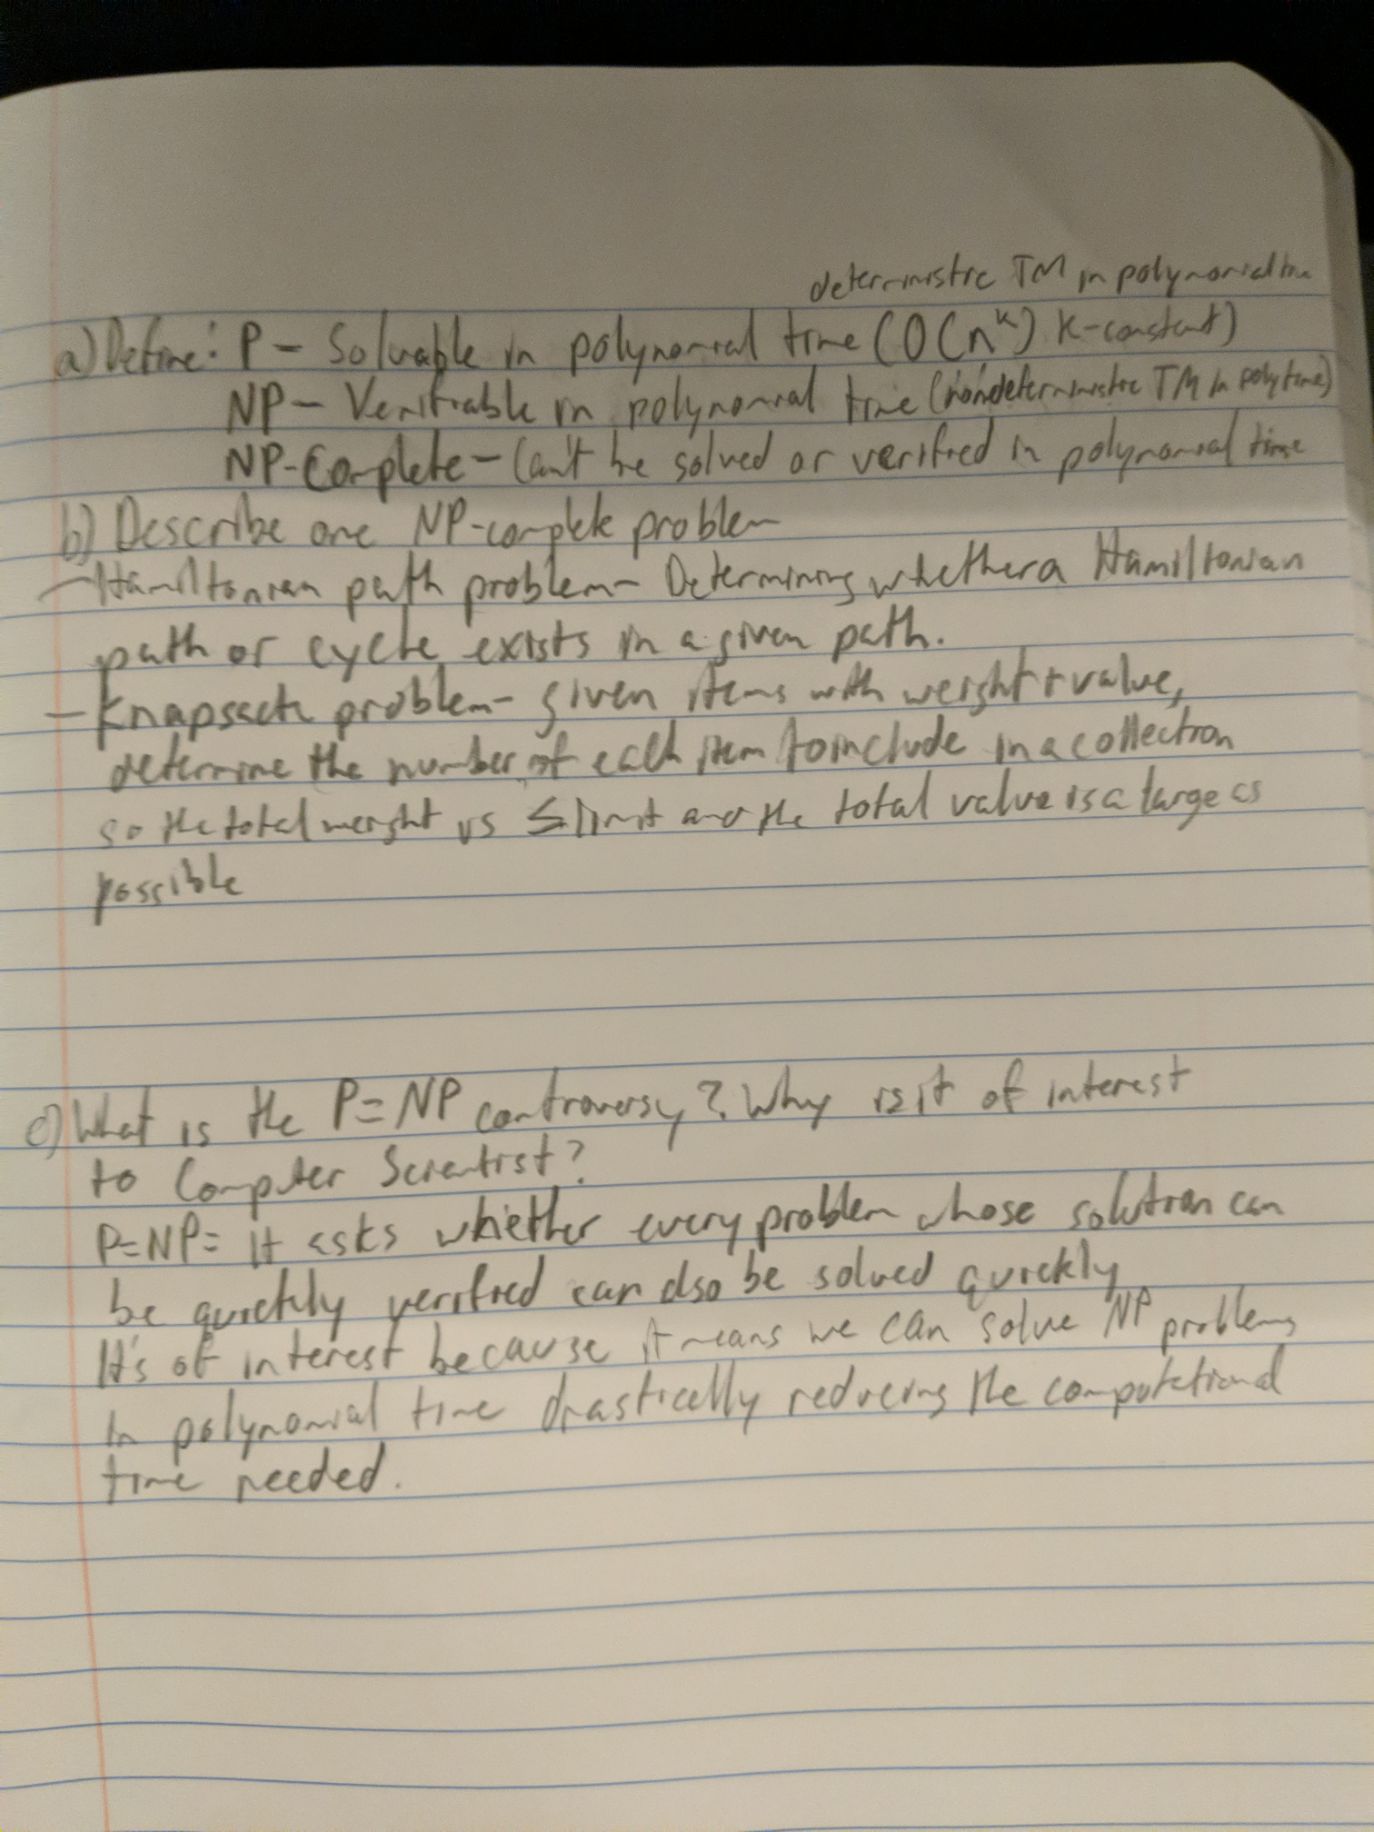 deterministic TM in polynomial time
a) Define: P - Solvable in polynomial time (O(n^k) k-constant)
NP - Verifiable in polynomial time (nondeterministic TM in poly time)
NP-Complete - Can't be solved or verified in polynomial time
b) Describe one NP-complete problem
- Hamiltonian path problem - Determining whether a Hamiltonian
path or cycle exists in a given path.
- Knapsack problem - given items with weight + value,
determine the number of each item to include in a collection
so the total weight is ≤ limit and the total value is a large as
possible
c) What is the P=NP controversy? Why is it of interest
to Computer Scientist?
P=NP= It asks whether every problem whose solution can
be quickly verified can also be solved quickly
It's of interest because it means we can solve NP problems
in polynomial time drastically reducing the computational
time needed.